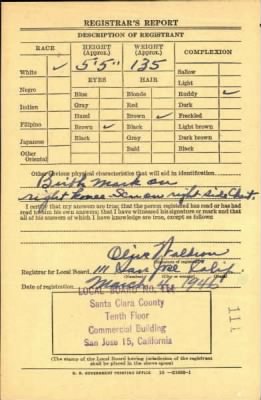 REGISTRAR'S REPORT
DESCRIPTION OF REGISTRANT
RACE
HEIGHT (Approx.)
WEIGHT (Approx.)
COMPLEXION
White ✓
5'5"
135
Sallow
EYES
HAIR
Light
Negro
Blue
Blonde
Ruddy ✓
Gray
Red
Dark
Indian
Hazel
Brown ✓
Freckled
Filipino
Brown ✓
Black
Light brown
Japanese
Black
Gray
Dark brown
Other
Oriental
Bald
Black
Other obvious physical characteristics that will aid in identification
Birth mark on
right knee - on right side Chest.
I certify that my answers are true; that the person registered has read or has had
read to him his own answers; that I have witnessed his signature or mark and that
all of his answers of which I have knowledge are true, except as follows:
Olive
Registrar for Local Board 111 San Jose Calif.
Date of registration March 4 1946
LOCAL BOARD NO. 111
Santa Clara County
Tenth Floor
Commercial Building
San Jose 15, California
111
(The stamp of the Local Board having jurisdiction of the registrant
shall be placed in the above space.)
U. S. GOVERNMENT PRINTING OFFICE